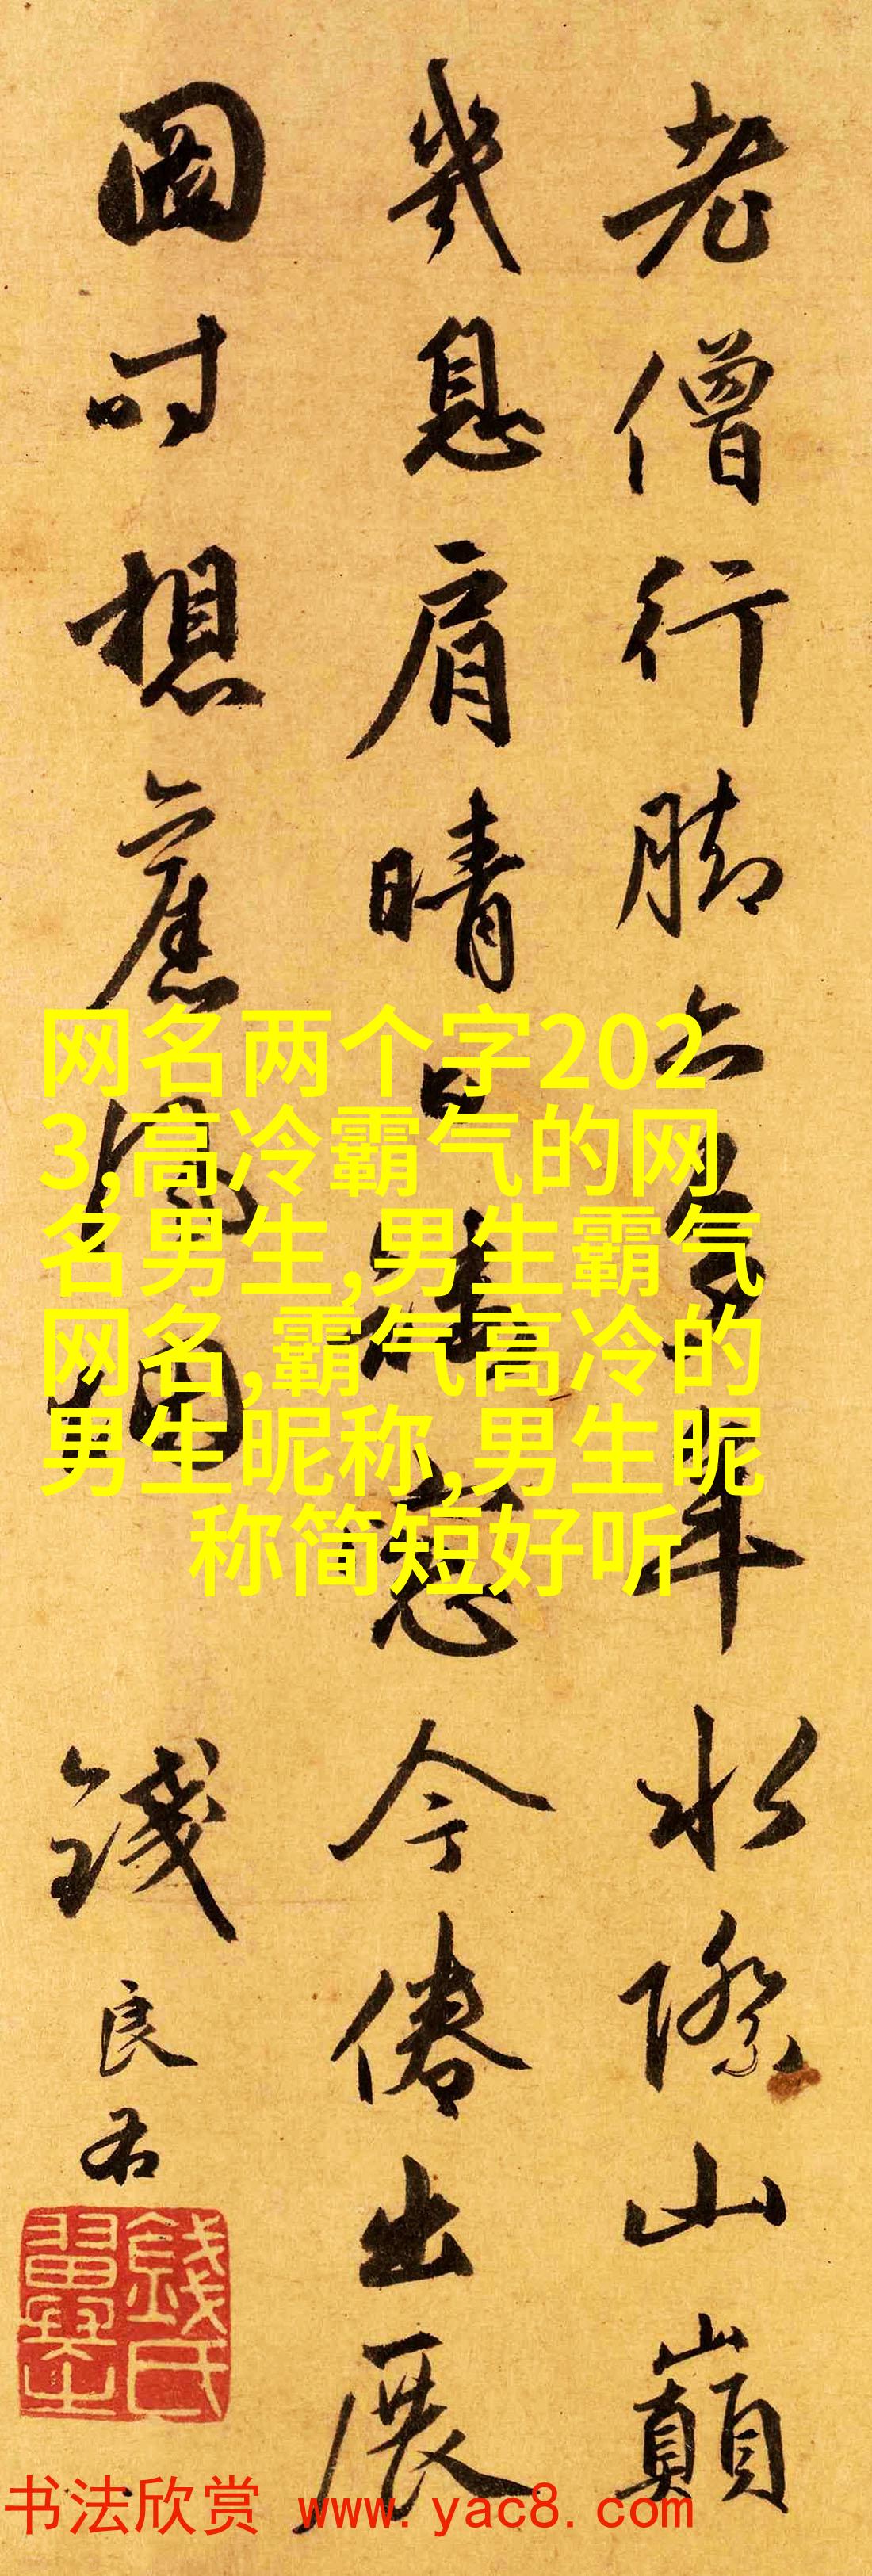 老僧行脚年水際山巔
幾息肩晴日窓今倦出展
圖時想舊
錢良右
錢氏翼之
网名两个字202
3,高冷霸气的网
名男生,男生霸气
网名,霸气高冷的
男生昵称,男生昵
称简短好听
书法欣赏 www.yac8.com